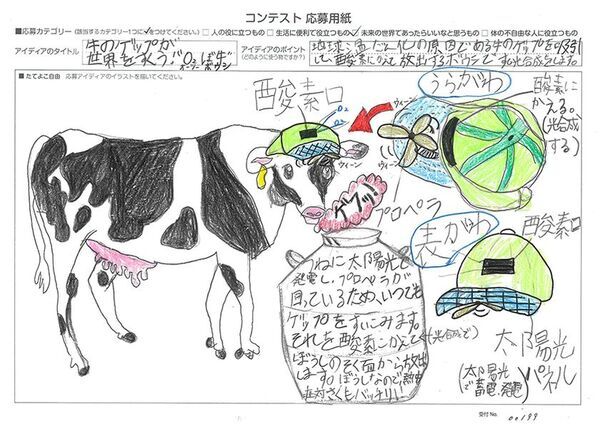 コンテスト 応募用紙
■応募カテゴリー(該当するカテゴリー1つに✓をつけてください。) □ 人の役に立つもの □ 生活に便利で役立つもの ☑ 未来の世界であったらいいなと思うもの □ 体の不自由な人に役立つもの
アイディアのタイトル
牛のゲップが
世界を救う!O₂ぼ牛
オーツーボウシ
アイディアのポイント
(どのように使う物ですか?)
地球温だん化の原因である牛のゲップを吸引
して、酸素にかえて放出するボウシです。光合成をします。
■たてよこ自由 応募アイディアのイラストを描いてください。
酸素口
O₂
O₂
ウィーン
ウィーン
ウィーン
うらがわ
酸素に
かえる。
(光合成
する)
ゲプッ!
プロペラ
表がわ
酸素口
つねに太陽光で
発電し、プロペラが
回っているため、いつでも
ゲップをすいこみます。
それを酸素にかえて(光合成で)
ぼうしのそく面から放出
します。ぼうしなので熱中
症対さくもバッチリ!
太陽光
パネル
(太陽光
で蓄電、発電)
受付No.
00199